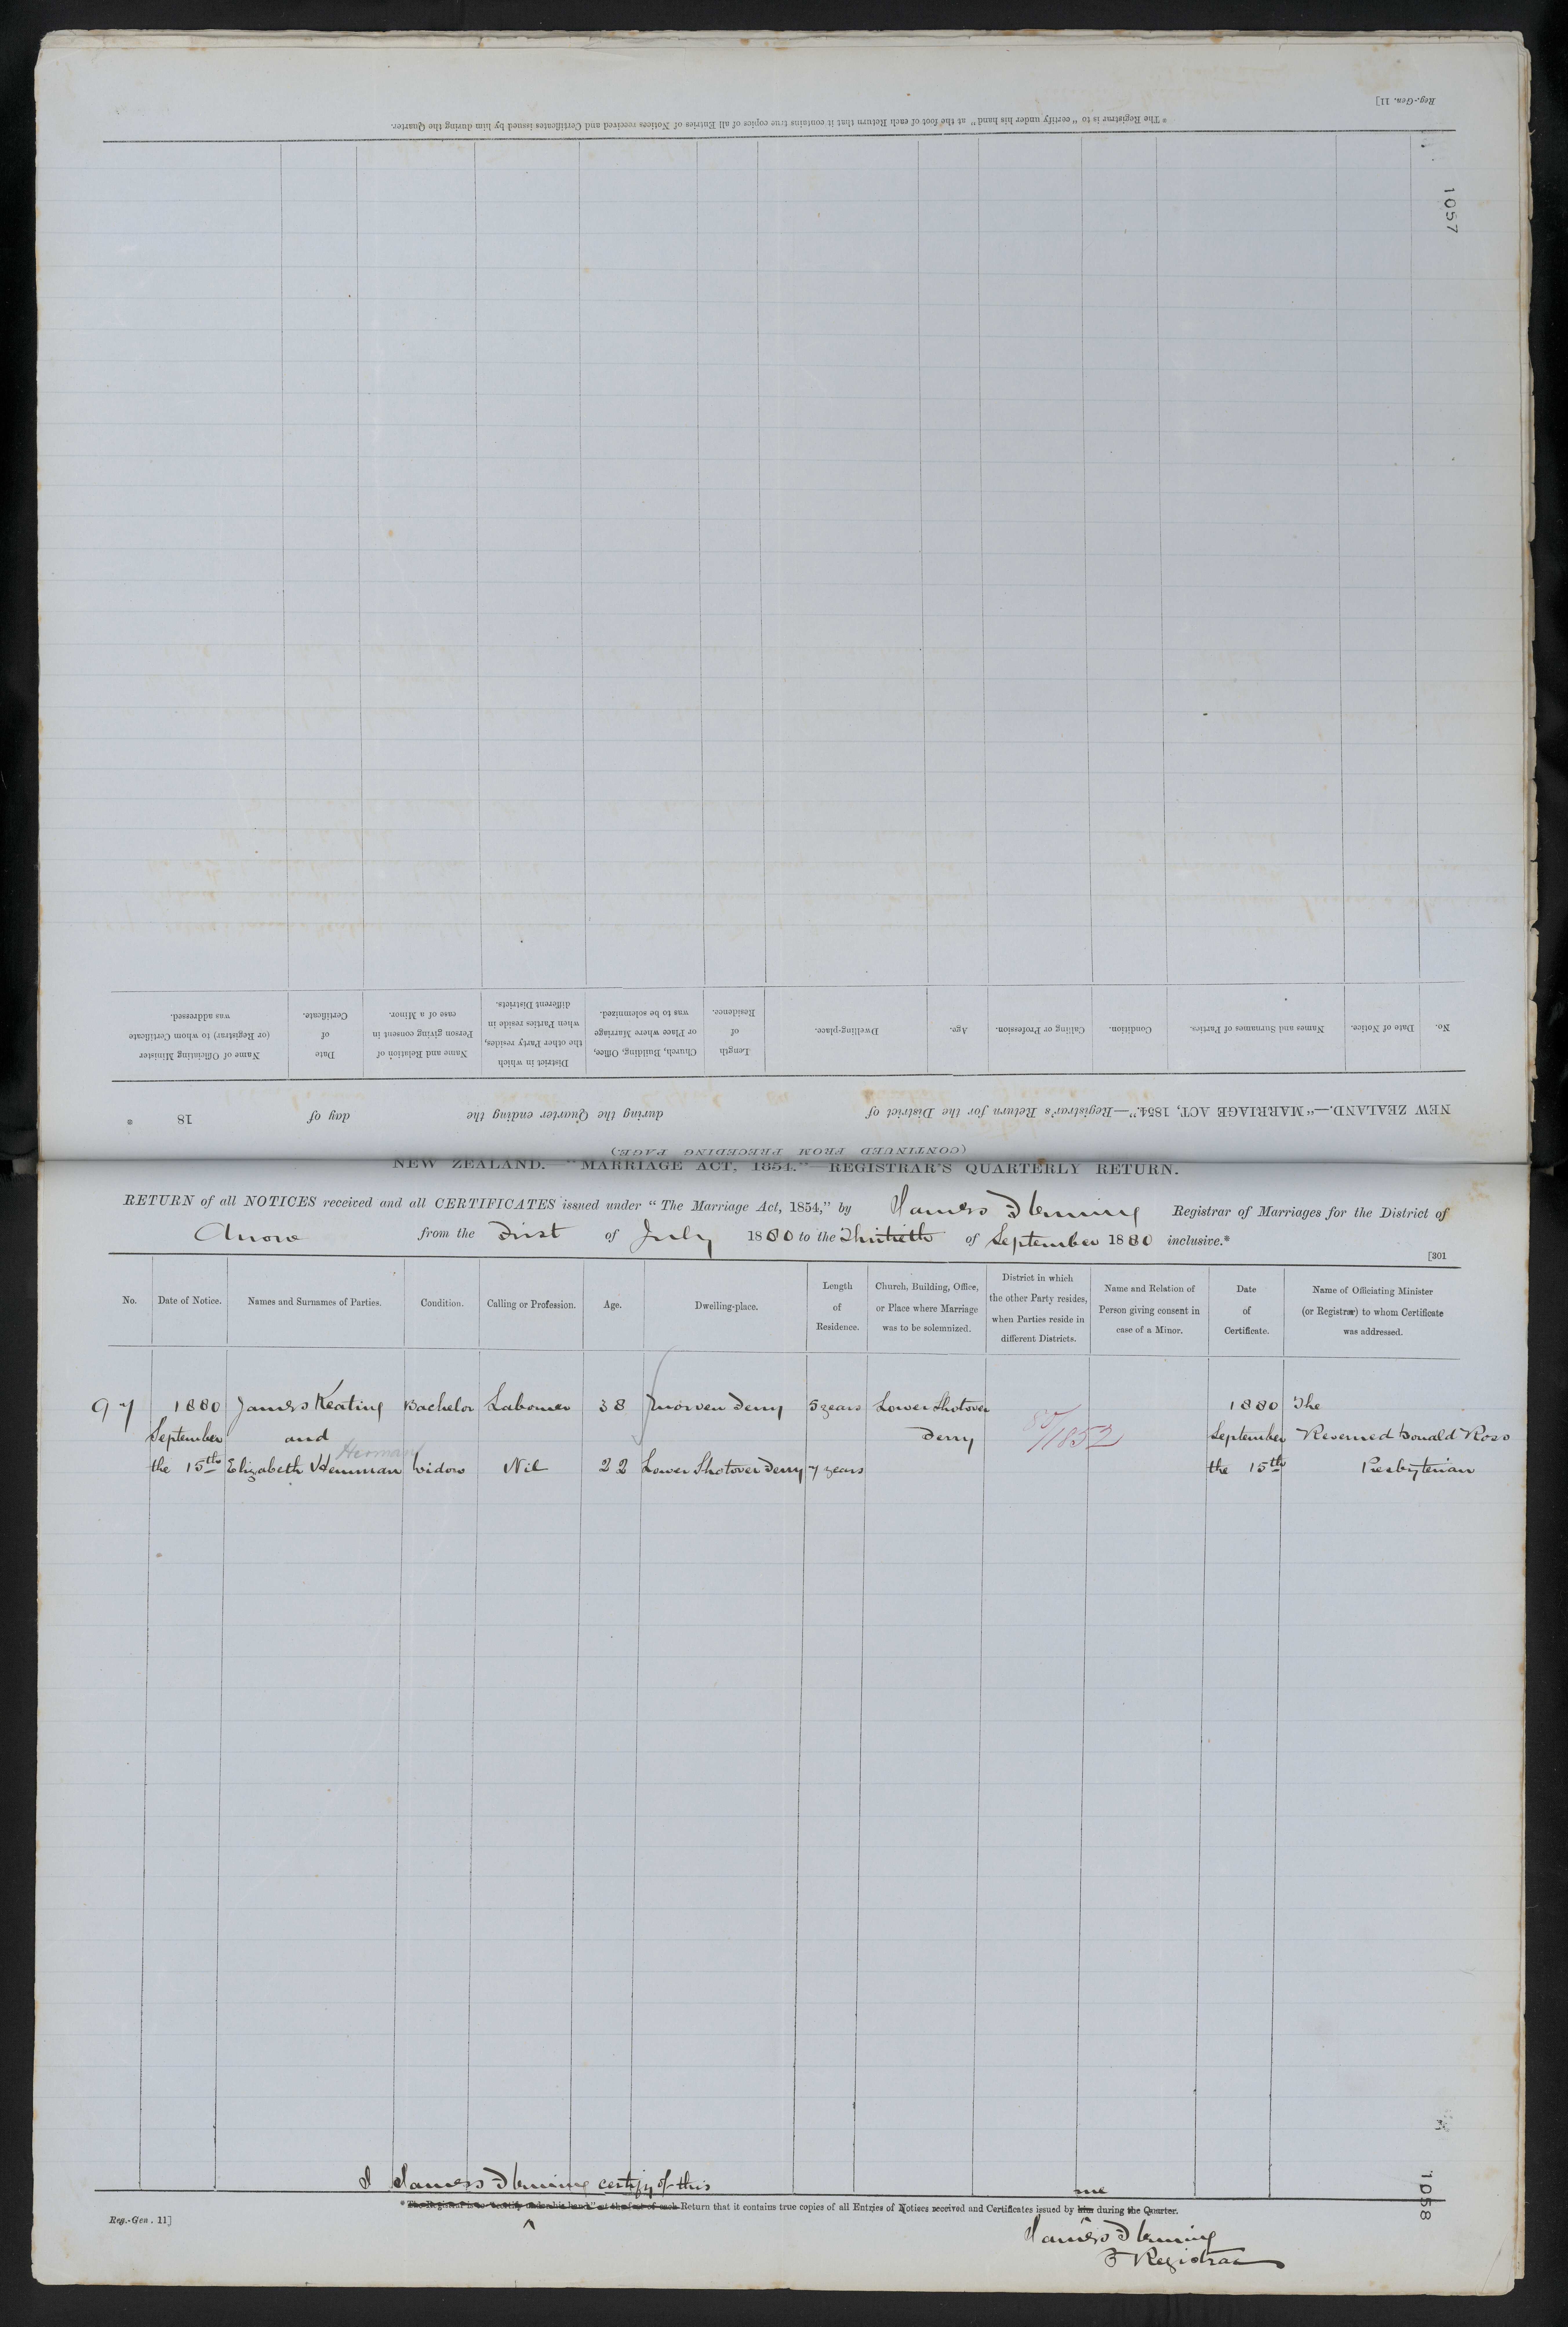 Reg.-Gen. 11]
* The Registrar is to "certify under his hand" at the foot of each Return that it contains true copies of all Entries of Notices received and Certificates issued by him during the Quarter.
1057
No.
Date of Notice.
Names and Surnames of Parties.
Condition.
Calling or Profession.
Age.
Dwelling-place.
Length
of
Residence.
Church, Building, Office,
or Place where Marriage
was to be solemnized.
District in which
the other Party resides,
when Parties reside in
different Districts.
Name and Relation of
Person giving consent in
case of a Minor.
Date
of
Certificate.
Name of Officiating Minister
(or Registrar) to whom Certificate
was addressed.
NEW ZEALAND.—"MARRIAGE ACT, 1854."—Registrar's Return for the District of during the Quarter ending the day of 18 *
(CONTINUED FROM PRECEDING PAGE.)
NEW ZEALAND.—"MARRIAGE ACT, 1854."—REGISTRAR'S QUARTERLY RETURN.
RETURN of all NOTICES received and all CERTIFICATES issued under "The Marriage Act, 1854," by James Fleming Registrar of Marriages for the District of
Arrow from the First of July 1880 to the Thirtieth of September 1880 inclusive.*
[301
No.
Date of Notice.
Names and Surnames of Parties.
Condition.
Calling or Profession.
Age.
Dwelling-place.
Length
of
Residence.
Church, Building, Office,
or Place where Marriage
was to be solemnized.
District in which
the other Party resides,
when Parties reside in
different Districts.
Name and Relation of
Person giving consent in
case of a Minor.
Date
of
Certificate.
Name of Officiating Minister
(or Registrar) to whom Certificate
was addressed.
97 1880 James Keating Bachelor Labourer 38 Morven Ferry 5 years Lower Shotover 1880 The
September and Herman Ferry 80/1852 September Reverend Donald Ross
the 15th Elizabeth Widow Nil 22 Lower Shotover Ferry 7 years the 15th Presbyterian
I James Fleming certify of this me
* The Registrar is to "certify under his hand" at the foot of each Return that it contains true copies of all Entries of Notices received and Certificates issued by him during the Quarter.
Reg.-Gen. 11]
James Fleming
Registrar
1058